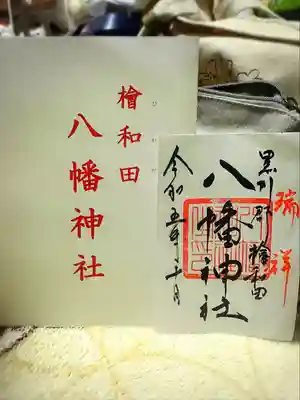 檜和田
八幡神社
瑞祥
黒川郡 檜和田
八幡神社
令和五年十月